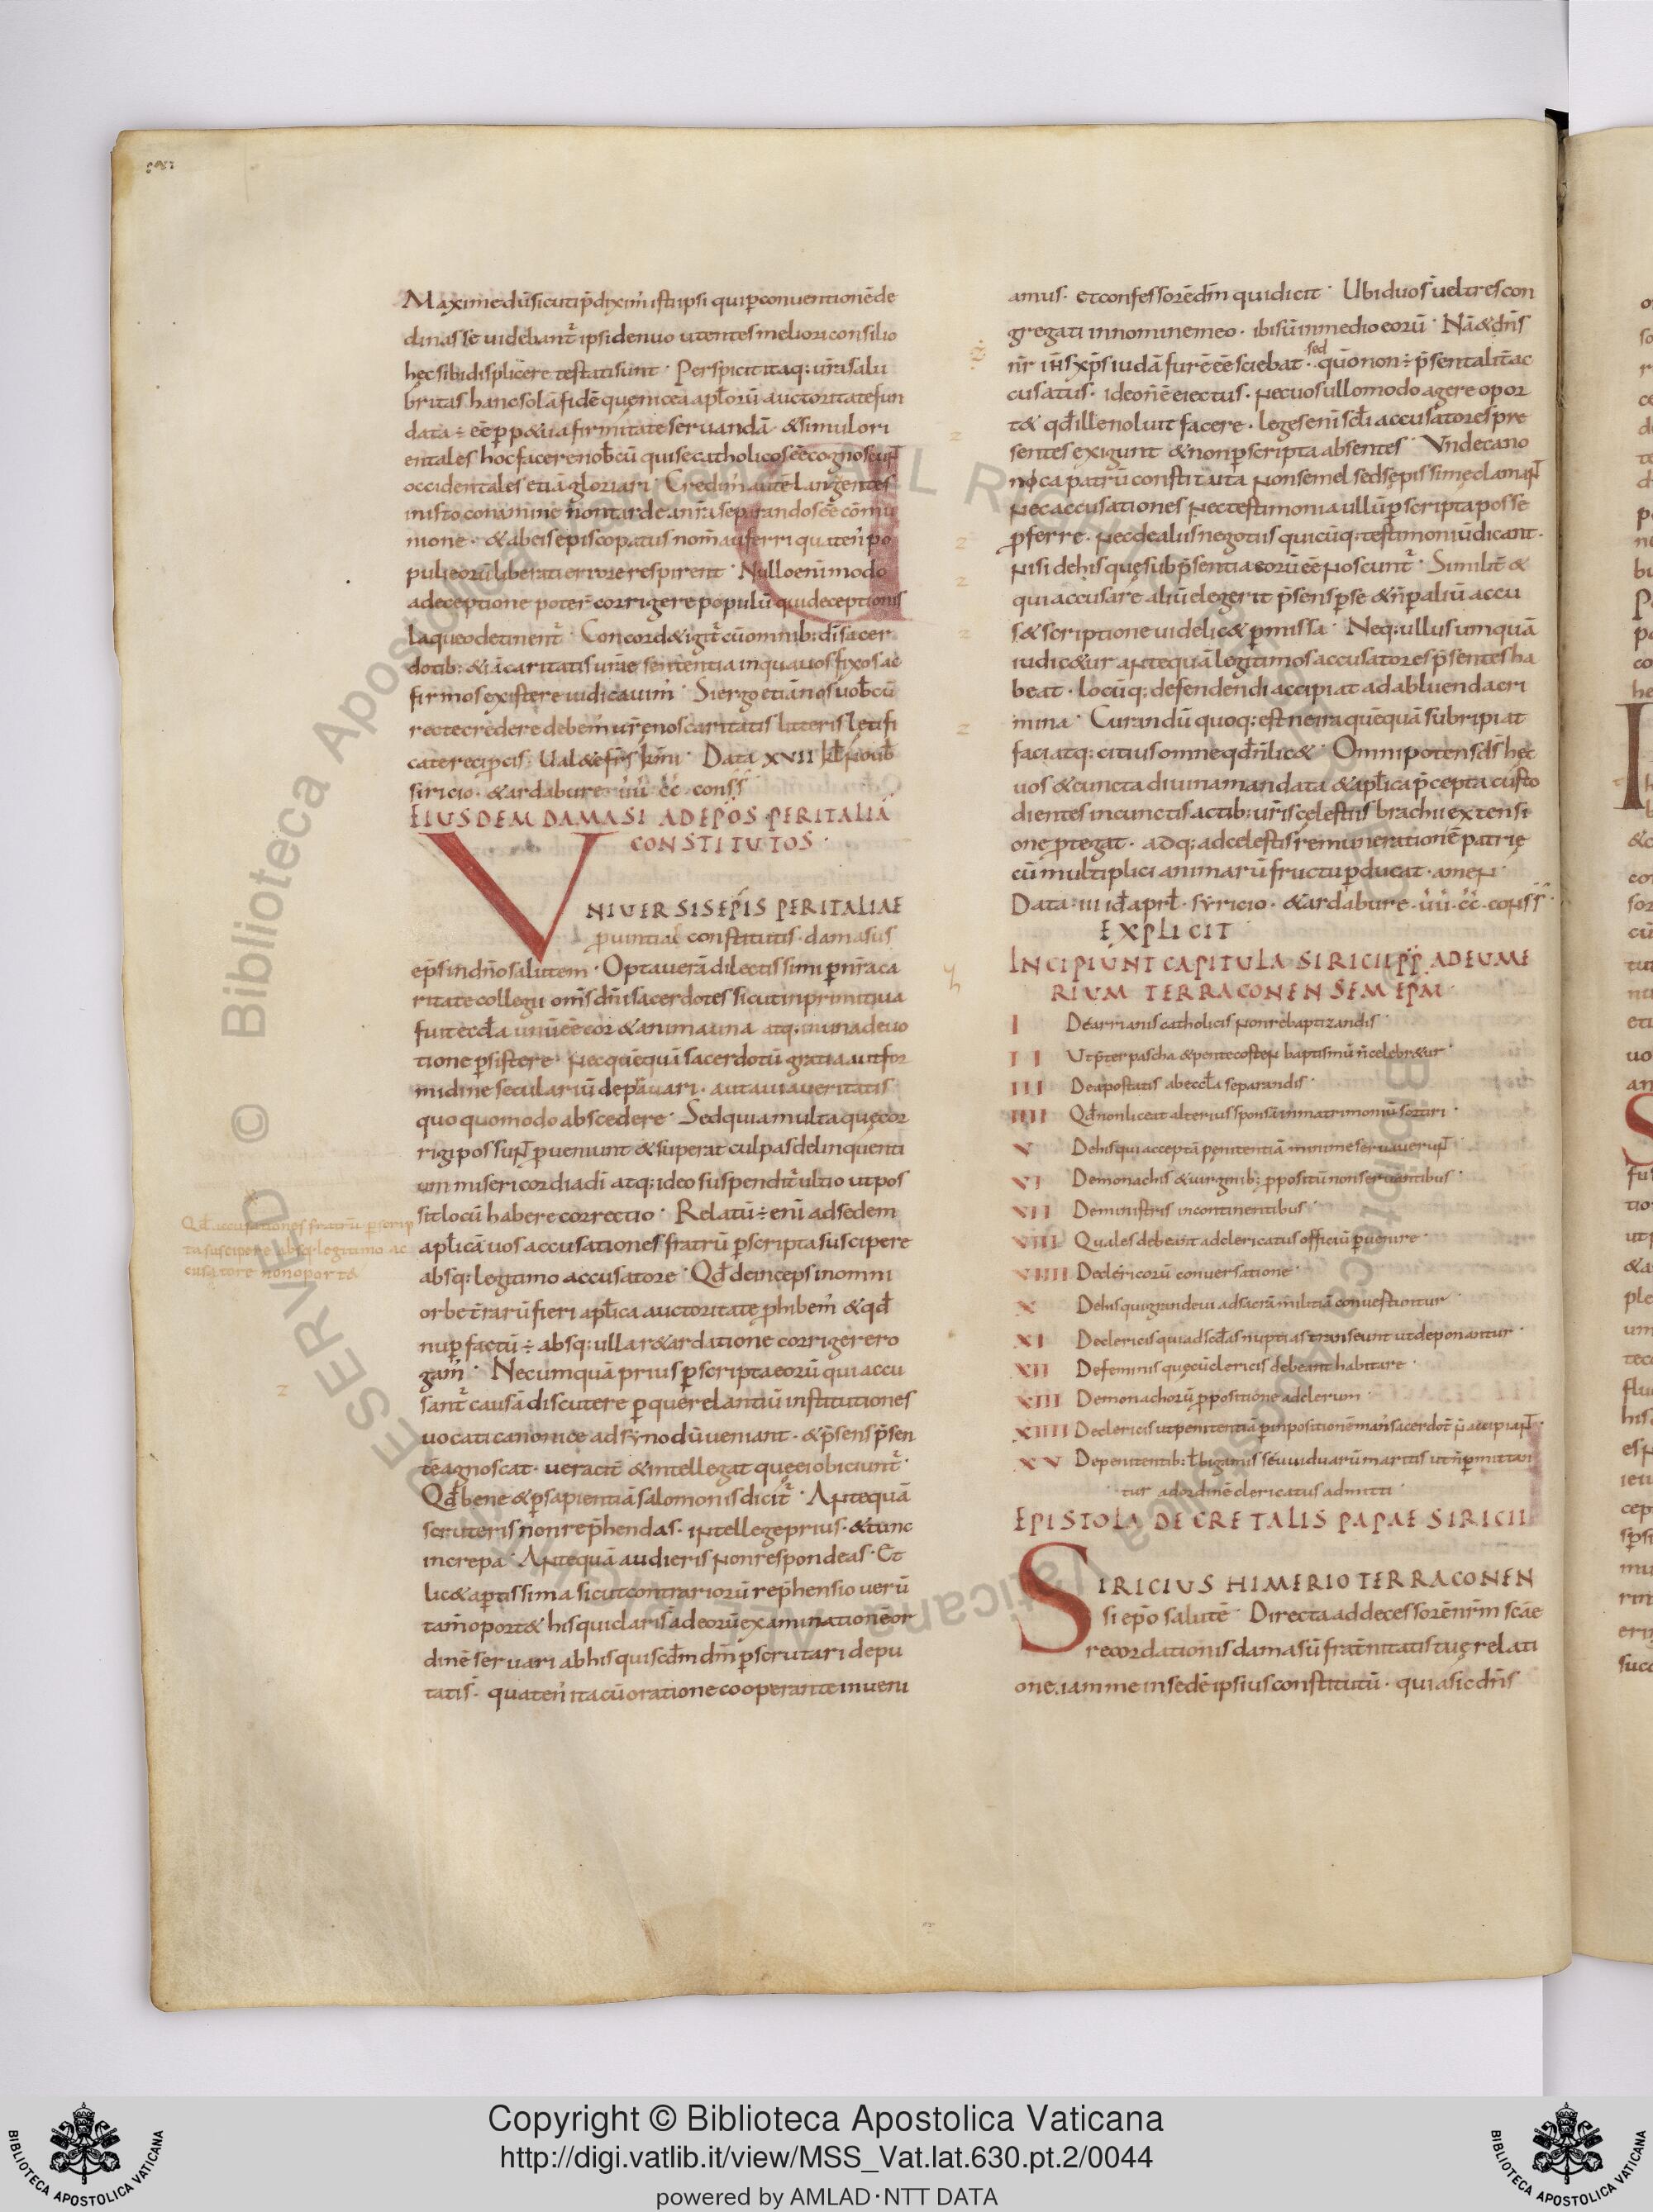 Maxime dū sicuti p̄diximꝰ isti ipsi qui ꝑ conuentionē de
dinasse uidebant᷑ ipsi denuo utentes meliori consilio
hęc sibi displicere testati sunt · Perspicit itaq; ur̄a salu
britas hanc solā fidē que nicea apl̄orū auctoritate fun
data ÷ eē ꝑp&ua firmitate seruandā · & simul ori
entales hoc facere nob̄cū qui se catholicos eē cognoscuɴt
occidentales etiā gloriari · Credimꝰ autē languentes
in isto conamine n̄ non tarde a nr̄a separandos eē cōmu
nione · & ab eis episcopatus nom̄ auferri quatenꝰ po
puli eorū liberati errore respirent · Nullo enī modo
a deceptione poterꝰ corrigere populū qui deceptionis
laqueo detinent᷑ · Concord& igit᷑ cū omnib; dī sacer
dotib; &iā caritatis ur̄ae sententia in qua uos fixos ac
firmos existere iudicauimꝰ · Si ergo etiā nos uob̄cū
recte credere debemꝰ ur̄ę nos caritatis litteris lętifi
cate reciꝓcis · Ual&e fr̄s km̄i · Data XVII kl̄ ɴoub̄
siricio · & ardabure · uū · cc̄ · conss̄
EIUSDEM DAMASI AD EPOS PER ITALIĀ
CONSTITUTOS ·
VNIUERSIS EPĪS PER ITALIAE
ꝓuintiae constitutis · damasus
ep̄s in dn̄o salutem · Optauerā dilectissimi ꝑ nr̄a ca
ritate collegii oms̄ dn̄i sacerdotes sicut in primitiua
fuit eccl̄a unū eē cor & anima una atq; in una deuo
tione ꝑsistere · ɴec quēquā sacerdotū gratia aut for
midine seculariū deprauari · aut a uia ueritatis
quoquomodo abscedere · Sed quia multa quę cor
rigi possuɴt ꝓueniunt & superat culpas delinquenti
um misericordia dī atq; ideo suspendit᷑ ultio ut pos
sit locū habere correctio · Relatū ÷ enī ad sedem
apl̄icā uos accusationes fratrū ꝑ scripta suscipere
absq; legitimo accusatore · Qđ deinceps in omni
orbe tr̄arū fieri apl̄ica auctoritate ꝓhibemꝰ & qđ
nuꝑ factū ÷ absq; ulla r&ardatione corrigere ro
gamꝰ · Nec umquā prius ꝑ scripta eorū qui accu
sant᷑ causā discutere ꝑ querelantiū institutiones
uocati canonice ad synodū ueniant · & p̄sens p̄sen
tē agnoscat · ueracit̄ & intellegat quę ei obiciunt᷑ ·
Qđ bene & ꝑ sapientiā salomonis dicit᷑ · Aɴtequā
scruteris non rep̄hendas · iɴtellege prius · & tunc
increpa · Aɴtequā audieris ɴon respondeas · Et
lic& aꝑtissima sicut contrariorū rep̄hensio uerū
tam̄ oport& his qui clariꝰ ad eorū examinationē or
dinē seruari ab his qui scd̄m dm̄ ꝑscrutari depu
tatis · quatenꝰ ita cū oratione cooperante inueni
Qđ accusationes fratrū ꝑ scrip
ta suscipere absq; legitimo ac
cusatore non oport&
amus · et confessorē dm̄ qui dicit · Ubi duo s̄ uel tres con
gregati in nomine meo · ibi sū in medio eorū · Nā & dn̄s
nr̄ ih̄s xp̄s iudā furē eē sciebat · sed qūo non ÷ p̄sentalit̄ ac
cusatus · ideo n̄ ē eiectus · ɴec uos ullo modo agere opor
t& qđ ille noluit facere · leges enī scl̄i accusatores pre
sentes exigunt & non ꝑ scripta absentes · Vnde cano
nica patrū constituta ɴon semel sed sępissime clamaɴt
ɴec accusationes ɴec testimonia ullū ꝑ scripta posse
ꝓferre · ɴec de aliis negotiis quicūq; testimoniū dicant ·
ɴisi de his quę sub p̄sentia eorū eē ɴoscunt᷑ · Similit̄ &
qui accusare aliū elegerit p̄sens ꝑ se & n̄ ꝑ aliū accu
s& scriptione uidelic& p̄missa · Neq; ullus umquā
iudic&ur aɴtequā legitimos accusatores p̄sentes ha
beat · locūq; defendendi accipiat ad abluenda cri
mina · Curandū quoq; est ne ira quēquā subripiat
faciatq; citius omne qđ n̄ lic& · Omnipotens ds̄ hęc
uos & cuncta diuina mandata & apl̄ica p̄cepta custo
dientes in cunctis actib; ur̄is cęlestiis brachii extensi
one ꝓtegat · adq; ad celestis remunerationē patrię
cū multiplici animarū fructu ꝑducat · ameɴ ·
Data · iii id̄ aprl̄ · syricio · & ardabure · uū · cc̄ · coɴss̄ ·
EXPLICIT
INCIPIUNT CAPITULA SIRICII PP̄ AD EUME
RIUM TERRACONENSEM EPM̄
I De arrianis catholicis ɴon rebaptizandis ·
II Ut p̄ter pascha & pentecosteɴ baptismū n̄ celebr&ur ·
III De apostatis ab eccl̄a separandis ·
IIII Qđ non liceat alterius sponsā in matrimoniū sortiri ·
V De his qui acceptā penitentiā minime seruaueruɴt ·
VI De monachis & uirginib; ꝓpositū non seruantibus ·
VII De ministris incontinentibus ·
VIII Quales debeant ad clericatus officiū ꝑuenire ·
VIIII De clericorū conuersatione ·
X De his qui grandeui ad sacrā militiā conuertuntur ·
XI De clericis qui ad scd̄as nuptias transeunt ut deponantur ·
XII De feminis quę cū clericis debeant habitare ·
XIII De monachorū ꝓpositione ad clerum ·
XIIII De clericis ut penitentiā ꝑ inpositionē manꝰ sacerdot̄ n̄ accipiaɴt ·
XV De penitentib; ł bigamis seu uiduarū maritis ut n̄ ꝑmittan
tur ad ordinē clericatus admitti ·
EPISTOLA DECRETALIS PAPAE SIRICII
SIRICIUS HIMERIO TERRACONEN
si epō salutē · Directa ad decessorē nr̄m scāe
recordationis damasū frat̄nitatis tuę relati
one · iam me in sedē ipsius constitutū · quia sic dn̄s
Copyright © Biblioteca Apostolica Vaticana
http://digi.vatlib.it/view/MSS_Vat.lat.630.pt.2/0044
powered by AMLAD·NTT DATA
BIBLIOTECA APOSTOLICA VATICANA
BIBLIOTECA APOSTOLICA VATICANA